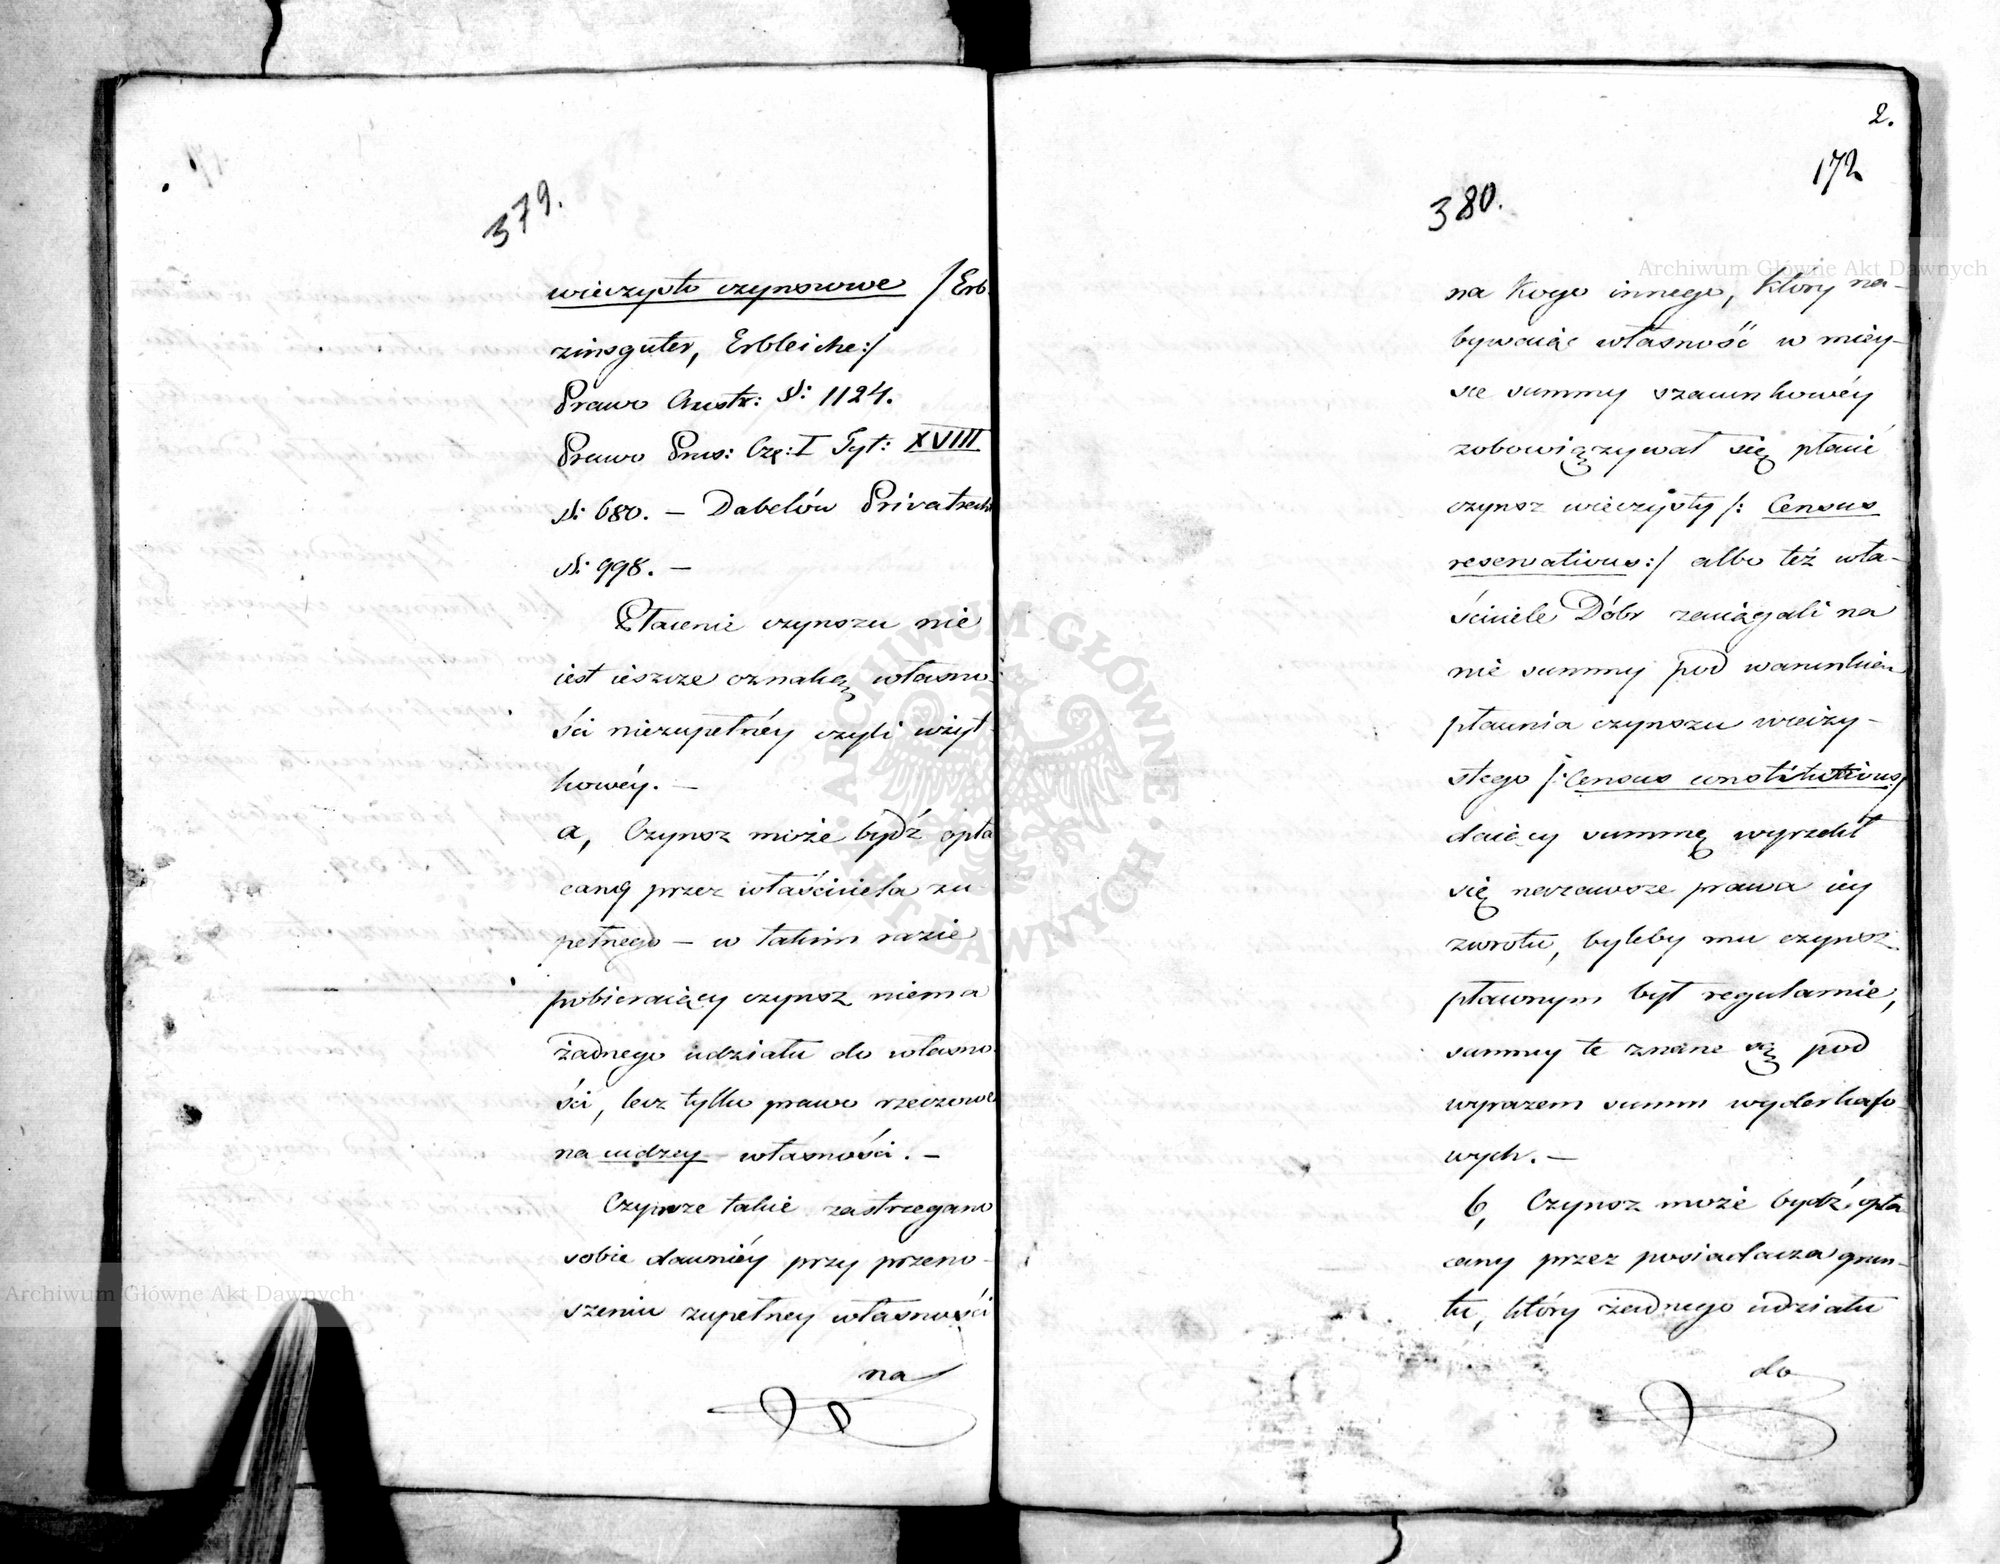 379.
wieczysto czynszowe /Erb-
zinsguter, Erbleiche:/
Prawo Austr: §: 1124.
Prawo Prus: Czę: I Tyt: XVIII
§: 680. — Dabelów Privatrecht
§: 998. —
Płacenie czynszu nie
iest ieszcze oznaką własno-
ści niezupełnéy czyli użyt-
kowéy. —
a, Czynsz może bydź opła
cany przez właściciela zu-
pełnego — w takim razie
pobieraiący czynsz niema
żadnego udziału do własno-
ści, lecz tylko prawo rzeczowe
na cudzey własności. —
Czynsze takie zastrzegano
sobie dawniéy przy przeno-
szeniu zupełney własności
na
2.
172
380.
na kogo innego, który na-
bywaiąc własność w miey-
sce summy szacunkowéy
zobowiązywał się płacić
czynsz wieczysty /: Census
reservativus:/ albo też wła-
ściciele Dóbr zaciągali na
nie summy pod warunkiem
płacenia czynszu wieczy-
stego /: Census constitutivus:/
daiący summę wyrzekł
się nazawsze prawa iey
zwrotu, byleby mu czynsz
płaconym był regularnie,
summy te znane są pod
wyrazem summ wyderkafo-
wych. —
b, Czynsz może bydź opła
cany przez posiadacza grun-
tu, który żadnego udziału
do
Archiwum Główne Akt Dawnych
Archiwum Główne Akt Dawnych
ARCHIWUM GŁÓWNE AKT DAWNYCH